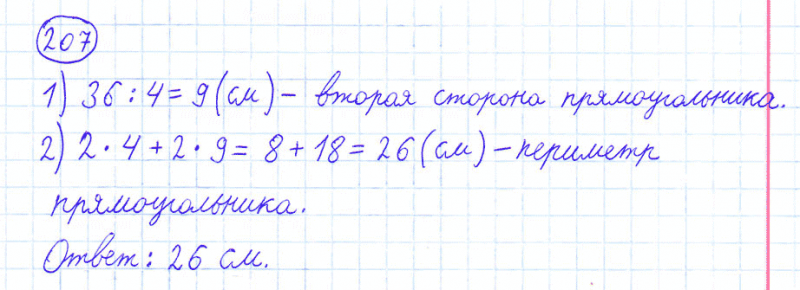 207
1) 36 : 4 = 9 (см) – вторая сторона прямоугольника.
2) 2 · 4 + 2 · 9 = 8 + 18 = 26 (см) – периметр
прямоугольника.
Ответ: 26 см.